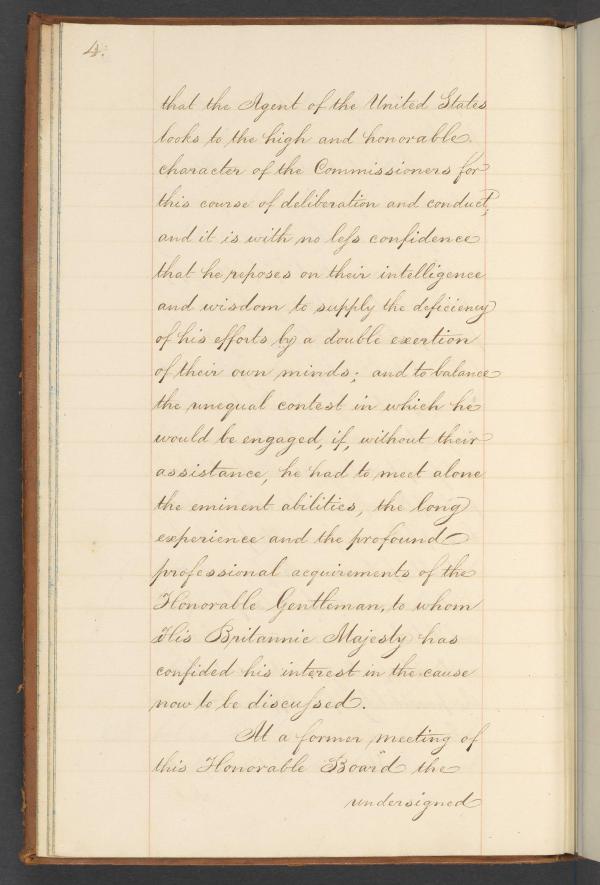 4.
that the Agent of the United States
looks to the high and honorable
character of the Commissioners for
this course of deliberation and conduct;
and it is with no less confidence
that he reposes on their intelligence
and wisdom to supply the deficiency
of his efforts by a double exertion
of their own minds; and to balance
the unequal contest in which he
would be engaged, if, without their
assistance, he had to meet alone
the eminent abilities, the long
experience and the profound
professional acquirements of the
Honorable Gentleman, to whom
His Britannic Majesty has
confided his interest in the cause
now to be discussed.
At a former meeting of
this Honorable Board the
undersigned